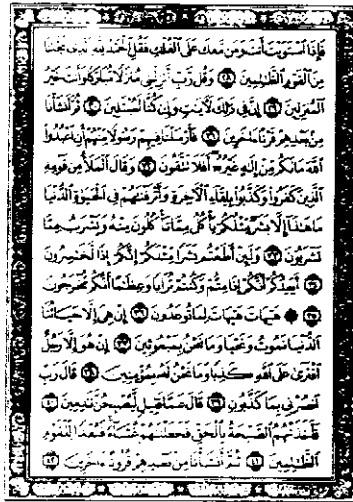 فَإِذَا ٱسْتَوَيْتَ أَنتَ وَمَن مَّعَكَ عَلَى ٱلْفُلْكِ فَقُلِ ٱلْحَمْدُ لِلَّهِ ٱلَّذِى نَجَّىٰنَا
مِنَ ٱلْقَوْمِ ٱلظَّـٰلِمِينَ ٢٨ وَقُل رَّبِّ أَنزِلْنِى مُنزَلًا مُّبَارَكًا وَأَنتَ خَيْرُ
ٱلْمُنزِلِينَ ٢٩ إِنَّ فِى ذَٰلِكَ لَـَٔايَـٰتٍ وَإِن كُنَّا لَمُبْتَلِينَ ٣٠ ثُمَّ أَنشَأْنَا
مِنۢ بَعْدِهِمْ قَرْنًا ءَاخَرِينَ ٣١ فَأَرْسَلْنَا فِيهِمْ رَسُولًا مِّنْهُمْ أَنِ ٱعْبُدُوا۟
ٱللَّهَ مَا لَكُم مِّنْ إِلَـٰهٍ غَيْرُهُۥٓ أَفَلَا تَتَّقُونَ ٣٢ وَقَالَ ٱلْمَلَأُ مِن قَوْمِهِ
ٱلَّذِينَ كَفَرُوا۟ وَكَذَّبُوا۟ بِلِقَآءِ ٱلْـَٔاخِرَةِ وَأَتْرَفْنَـٰهُمْ فِى ٱلْحَيَوٰةِ ٱلدُّنْيَا
مَا هَـٰذَآ إِلَّا بَشَرٌ مِّثْلُكُمْ يَأْكُلُ مِمَّا تَأْكُلُونَ مِنْهُ وَيَشْرَبُ مِمَّا
تَشْرَبُونَ ٣٣ وَلَئِنْ أَطَعْتُم بَشَرًا مِّثْلَكُمْ إِنَّكُمْ إِذًا لَّخَـٰسِرُونَ
٣٤ أَيَعِدُكُمْ أَنَّكُمْ إِذَا مِتُّمْ وَكُنتُمْ تُرَابًا وَعِظَـٰمًا أَنَّكُم مُّخْرَجُونَ
٣٥ ۞ هَيْهَاتَ هَيْهَاتَ لِمَا تُوعَدُونَ ٣٦ إِنْ هِىَ إِلَّا حَيَاتُنَا
ٱلدُّنْيَا نَمُوتُ وَنَحْيَا وَمَا نَحْنُ بِمَبْعُوثِينَ ٣٧ إِنْ هُوَ إِلَّا رَجُلٌ
ٱفْتَرَىٰ عَلَى ٱللَّهِ كَذِبًا وَمَا نَحْنُ لَهُۥ بِمُؤْمِنِينَ ٣٨ قَالَ رَبِّ
ٱنصُرْنِى بِمَا كَذَّبُونِ ٣٩ قَالَ عَمَّا قَلِيلٍ لَّيُصْبِحُنَّ نَـٰدِمِينَ ٤٠
فَأَخَذَتْهُمُ ٱلصَّيْحَةُ بِٱلْحَقِّ فَجَعَلْنَـٰهُمْ غُثَآءً فَبُعْدًا لِّلْقَوْمِ
ٱلظَّـٰلِمِينَ ٤١ ثُمَّ أَنشَأْنَا مِنۢ بَعْدِهِمْ قُرُونًا ءَاخَرِينَ ٤٢